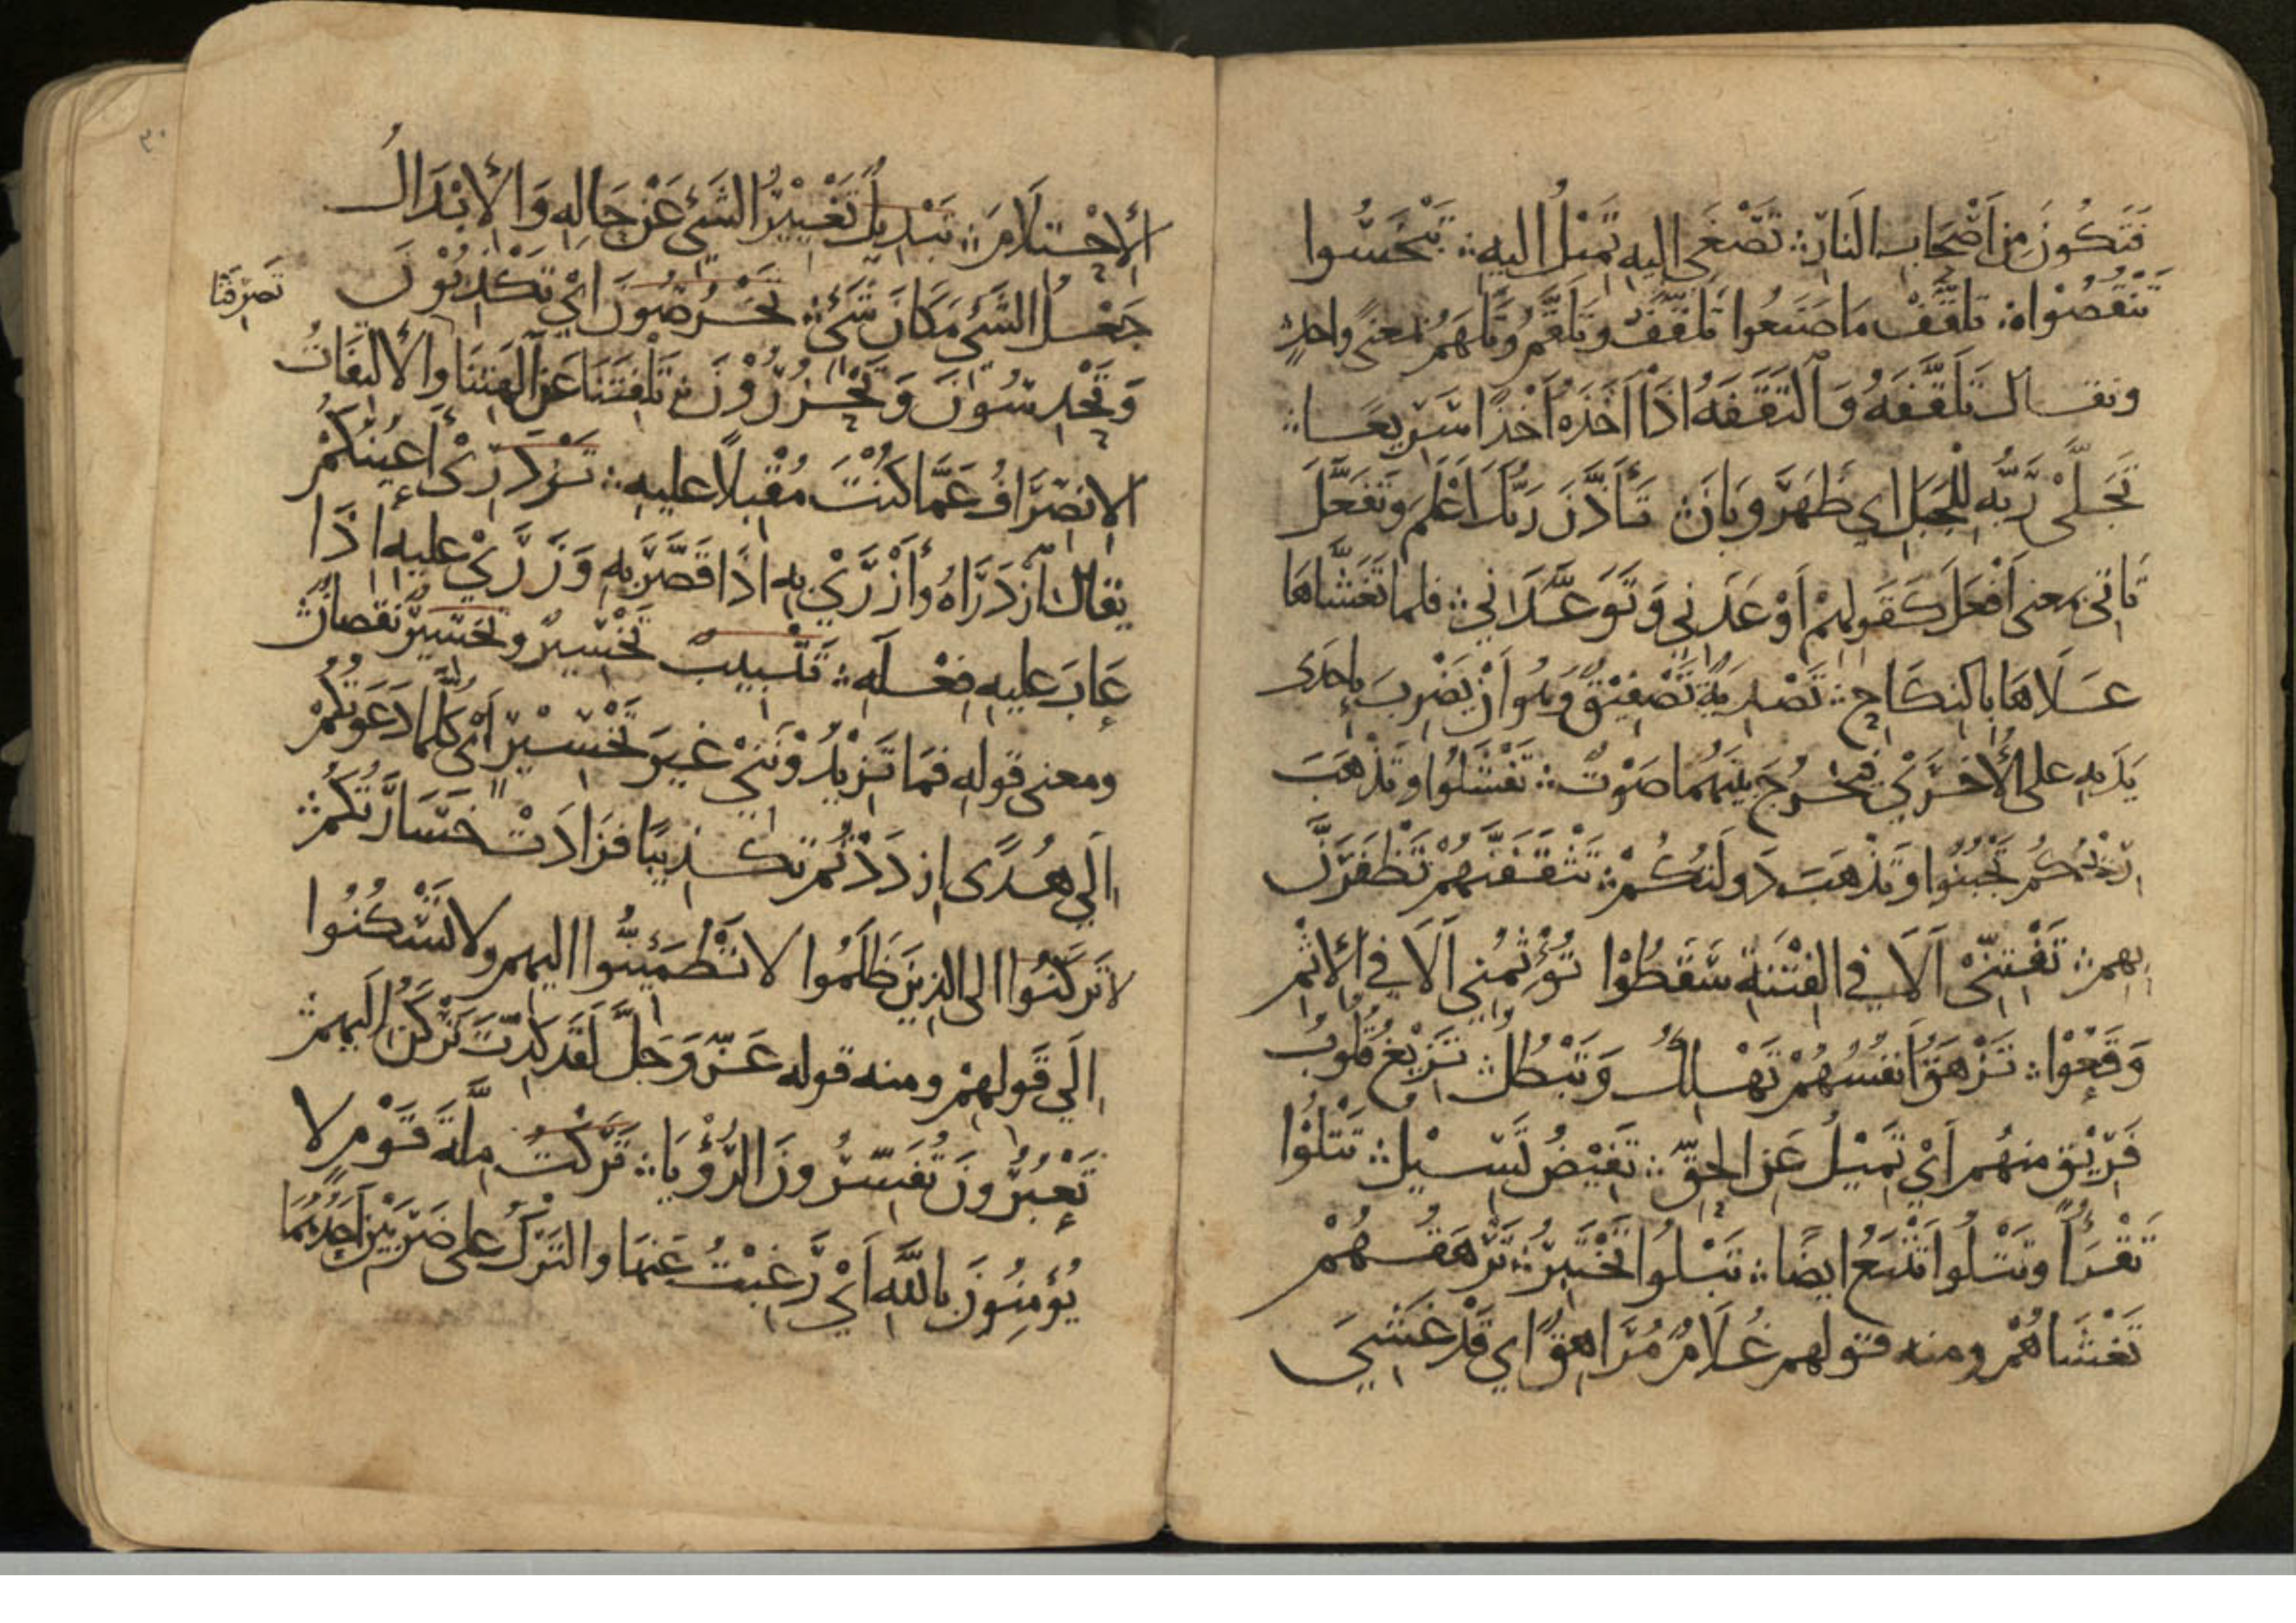 فَتَكُونَ مِن اَصْحَابِ النَارِ؞ تَصْغَى اليه تَمِيْلُ اليه؞ تَبْخَسُوا
تَنْقُصُوْا؞ تلقَّفْ مَا صَنَعُوا تَلْقَفُ وتَلْقَمُ وتَلْهَمُ بمعنًى واحدٍ
ويقال تَلَقَّفَهُ وَالْتَقَفَهُ اذَا اَخَذَهُ اَخْذًا سَرِيعًا؞
تَجَلَّى رَبُّهُ لِلْجَبَلِ اي ظَهَرَ وبَانَ؞ تَأَذَّنَ رَبُّكَ اَعْلَمَ وتَفَعَّلَ
يَاتِي بمعنى اَفْعَلَ كَقَولِهِمْ اَوْعَدَنِي وَتَوَعَّدَانِي؞ فلما تَغَشَّاهَا
عَلَاهَا بالنِكَاحِ؞ تَصْدِيَةً تَصْفِيْقٌ وهُوَ اَنْ يَضْرِبَ باِحدَى
يَدَيهِ على الأُخْرَي فيَخْرُجَ بينَهُما صَوْتٌ؞ تَفْشَلُوا وتَذْهَبَ
رِيْحُكُم تَجْبُنُوا وتَذْهَبَ دَولَتُكُمْ؞ تَثْقَفَنَّهُمْ تَظْفَرَنَّ
بِهِم؞ تَفْتِنِّىْ اَلَا فِي الفِتْنَةِ سَقَطُوْا تُؤْثِمْنِي اَلَا فِي الإِثْمِ
وَقَعُوْا؞ تَزْهَقَ اَنفُسُهُمْ تَهْلِكُ وَتَبْطُلُ؞ تَزِيْغُ قُلُوبُ
فَرِيْقٍ مِنهُم اَيْ تَمِيْلُ عَنِ الحَقِّ؞ تَفِيْضُ تَسِيْلُ؞ تَتْلُوْا
تَقْرَأُ وتَتْلُوا تَتْبَعُ ايضًا؞ تَبْلُوا تَخْتَبِرُ؞ تَرْهَقُهُمْ
تَغْشَاهُمْ ومنه قولهم غُلَامٌ مُرَاهِقٌ اي قَدْ غَشِيَ
الأِحْتِلَامَ؞ تَبْدِيلُ تَغْيِيْرُ الشَيْءِ عَنْ حَالِهِ وَالأِبْدَالُ
جَعْلُ الشَيْءِ مَكَانَ شَيْءٍ؞ تَخْرُصُونَ اَيْ تَكْذِبُوْنَ
وَتَحْدِسُونَ وَتَحْزُرُوْنَ؞ تَلْفِتَنَا عَنْ آلِهَتِنَا والأِلتِفَاتُ تَصرِفَنَا
الاِنصِرَافُ عَمَّا كُنْتَ مُقْبِلًا عليهِ؞ تَزْدَرِىْ أَعيُنُكُمْ
يقالُ اَزْدَرَاهُ وأَزْرَيْ بِهِ اذَا قَصَّرَ بِهِ وَزَرَيْ عليهِ اذَا
عَابَ عليهِ فِعْلَهُ؞ تَتْبِيبٍ تَخْسِيرٌ وتَخسِيْرٌ نقصانٌ؞
ومعنى قولهِ فمَا تَزِيْدُوْنَنِيْ غيرَ تَخْسِيْرٍ اَىْ كُلَّمَا دَعَوتُكُمْ
اِلَي هُدًى اِزدَدْتُم تَكْذِيبًا فزَادَتْ خَسَارَتُكُمْ؞
لا تَرْكَنُوا الى الذِينَ ظَلَمُوا لا تَطْمَئِنُّوا اليهم ولا تَسْكُنُوا
اِلَي قَولِهِمْ ومنه قوله عَزَّ وَجَلَّ لَقَد كِدْتَ تَرْكَنُ اِلَيهِم؞
تَعْبُرُونَ تُفَسِّرُونَ الرُّؤْيَا؞ تَرَكْتُ مِلَّةَ قَوْمٍ لا
يُؤمِنُونَ باللّٰهِ اَيْ رَغِبْتُ عَنهَا والتَرْكُ على ضَرْبَيْنِ اَحَدُهُمَا